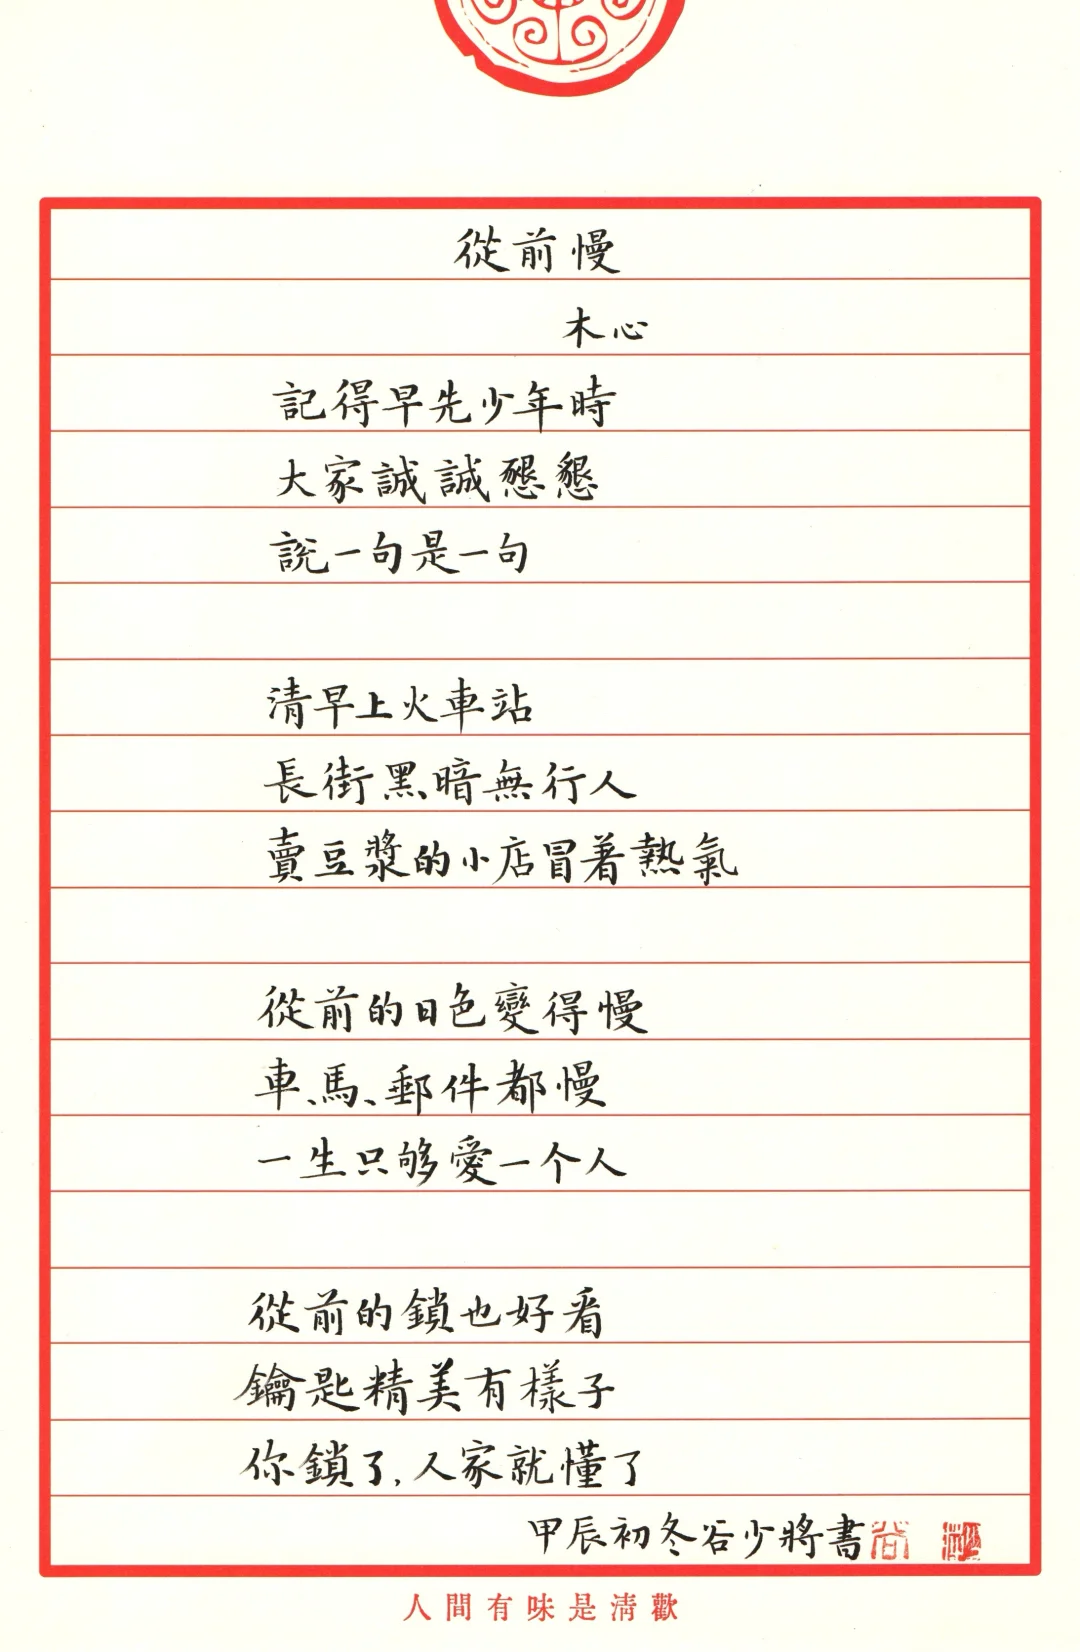 從前慢
木心
記得早先少年時
大家誠誠懇懇
說一句是一句
清早上火車站
長街黑暗無行人
賣豆漿的小店冒著熱氣
從前的日色變得慢
車、馬、郵件都慢
一生只够愛一个人
從前的鎖也好看
鑰匙精美有樣子
你鎖了,人家就懂了
甲辰初冬谷少將書
谷
人間有味是清歡